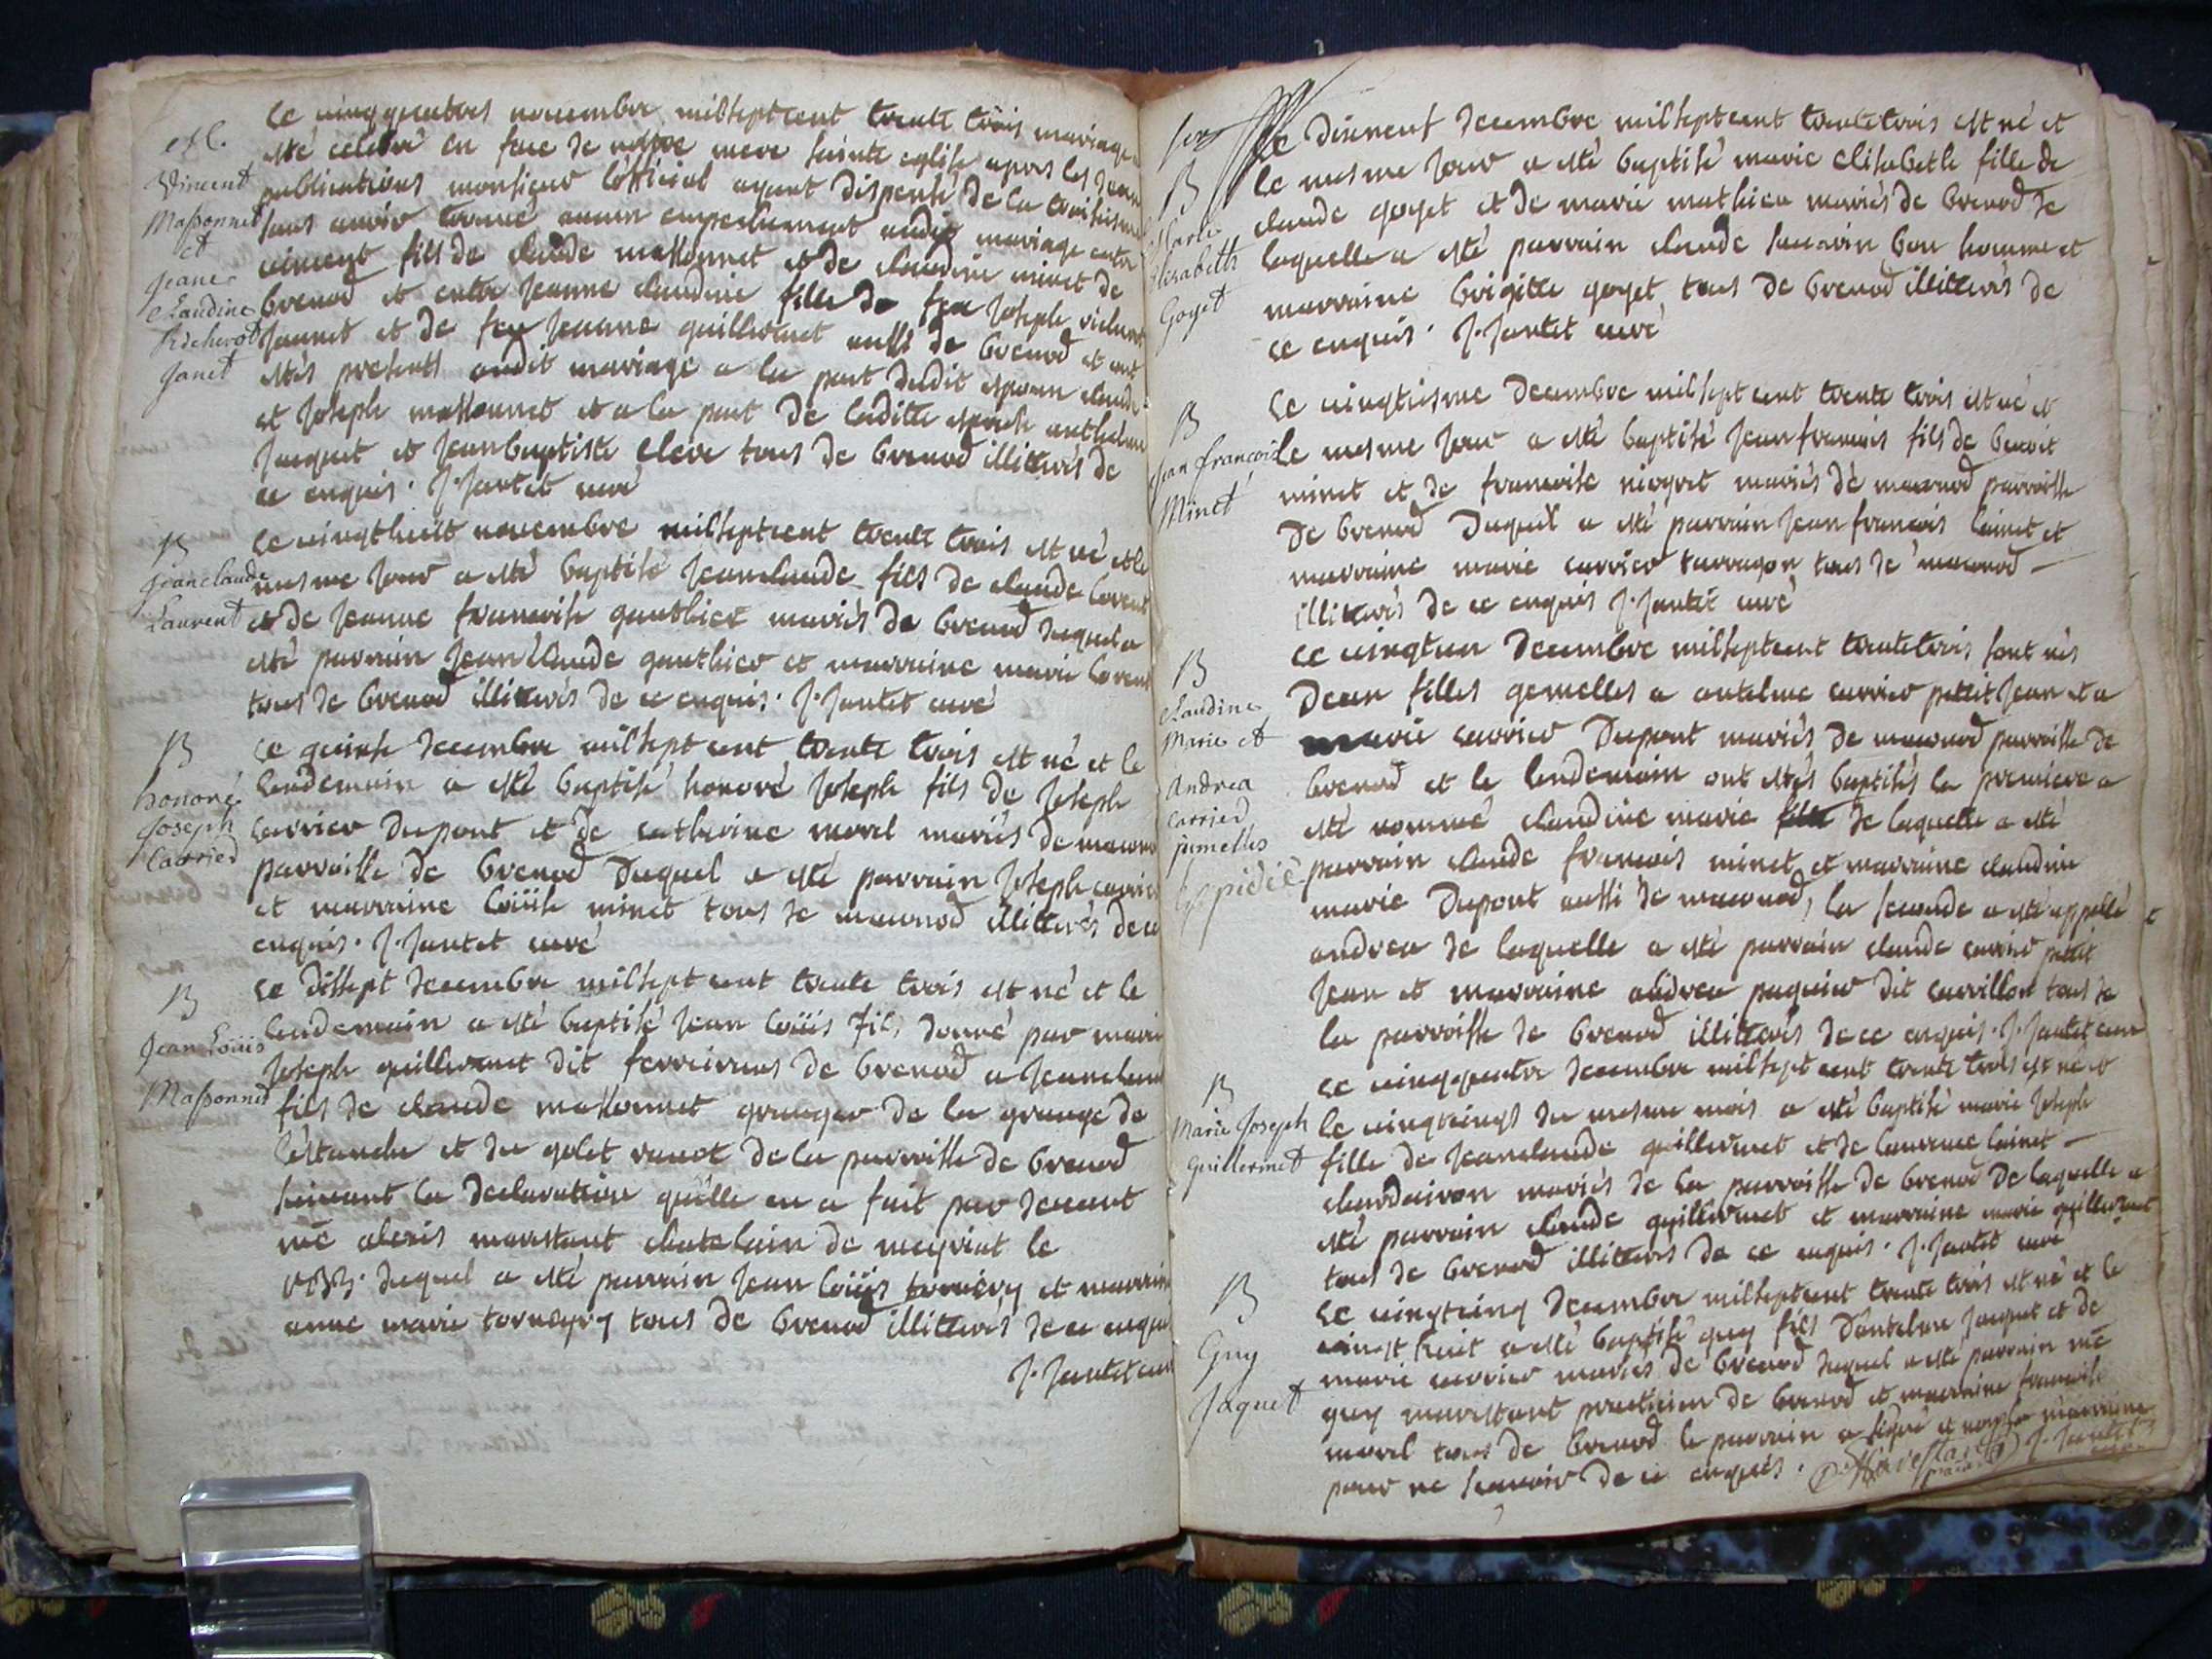 M.
Vincent
Massonnet
et
jeane
claudine
Richerot
janet
Le vingtquatres novembre milseptcent trente trois mariage a
esté celebré en face de nostre mere sainte eglise apres les deux
publications monsieur l'official ayant dispensé de la troisiesme
sans avoir trouvé aucun empeschement audit mariage entre
vincent fils de claude massonnet et de claudine minet de
brenod et entre jeanne claudine fille de feu joseph
jannet et de feu jeanne guillermet aussi de brenod et ont
estés presents audit mariage a la part dudit espoux claude
et joseph massonnet et a la part de laditte espouse anthelme
jacquet et jeanbaptiste cleve tous de brenod illitterés de
ce enquis. J. Jantet curé
B
jeanclaude
Laurent
Le vingthuit novembre milseptcent trente trois est né et le
mesme jour a esté baptisé jeanclaude fils de claude lorent
et de jeanne francoise gauthier mariés de brenod duquel a
esté parrain jean claude gauthier et marraine marie lorent
tous de brenod illiterés de ce enquis. J. Jantet curé
B
honoré
joseph
Carried
Le quinse decembre milsept cent trente trois est né et le
lendemain a esté baptisé honoré joseph fils de joseph
carrier dupont et de catherine morel mariés de macono
parroisse de brenod duquel a esté parrain joseph carrier
et marraine loüise minet tous de maconod illitterés de ce
enquis. J. Jantet curé
B
jean Loüis
Massonnet
Le dissept decembre milsept cent trente trois est né et le
lendemain a esté baptisé jean loüis fils donné par marie
joseph guillermet dit de brenod a jeanclaude
fils de claude massonnet granger de la grange de
l'estanche et du golet de la parroisse de brenod
suivant la declaration qu'elle en a fait par devant
me alexis marestant chatelain de meyriat le
1733. duquel a esté parrain jean loüis torneiry et marraine
anne marie torneyry tous de brenod illitterés de ce enquis
J. Jantet curé
B
Marie
Elisabeth
Goyet
Le dixneuf decembre milseptcent trentetrois est né et
le mesme jour a esté baptisé marie elisabeth fille de
claude goyet et de marie mathieu mariés de brenod de
laquelle a esté parrain claude savarin bon homme et
marraine brigitte goyet tous de brenod illitterés de
ce enquis. J. Jantet curé
B
jean françois
Minet
Le vingtiesme decembre milsept cent trente trois est né et
le mesme jour a esté baptisé jean francois fils de benoit
minet et de francoise niogret mariés de maconod parroisse
de brenod duquel a esté parrain jean francois Cainet et
marraine marie carrier tarragon tous de maconod
illiterés de ce enquis J. Jantet curé
B
claudine
Marie et
Andrea
carried
jumelles
Expidié
Le vingtun decembre milseptcent trentetrois sont nés
deux filles gemelles a antelme carrier petit jean et a
marie carrier dupont mariés de maconod parroisse de
brenod et le lendemain ont estés baptisés la premiere a
esté nommé claudine marie de laquelle a esté
parrain claude francois minet et marraine claudine
marie dupont aussi de maconod, la seconde a esté appellé
andrea de laquelle a esté parrain claude carrier petit
jean et marraine andrea paquier dit carrillon tous de
la parroisse de brenod illitterés de ce enquis. J. Jantet curé
B
Marie Joseph
Guillermet
Le vingtquatre decembre milsept cent trente trois est né et
le vingtcinq du mesme mois a esté baptisé marie joseph
fille de jeanclaude guillermet et de laurence Cainet
mariés de la parroisse de brenod de laquelle a
esté parrain claude guillermet et marraine marie guillermet
tous de brenod illitterés de ce enquis. J. Jantet curé
B
Guy
Jaquet
Le vingtcinq decembre milseptcent trente trois est né et le
vingt huit a esté baptisé guy fils d'antelme jaquet et de
marie carrier mariés de brenod duquel a esté parrain me
guy marestant praticien de brenod et marraine francoise
morel tous de brenod le parrain a signé et non la marraine
pour ne scavoir de ce enquis. Marestant J. Jantet
curé